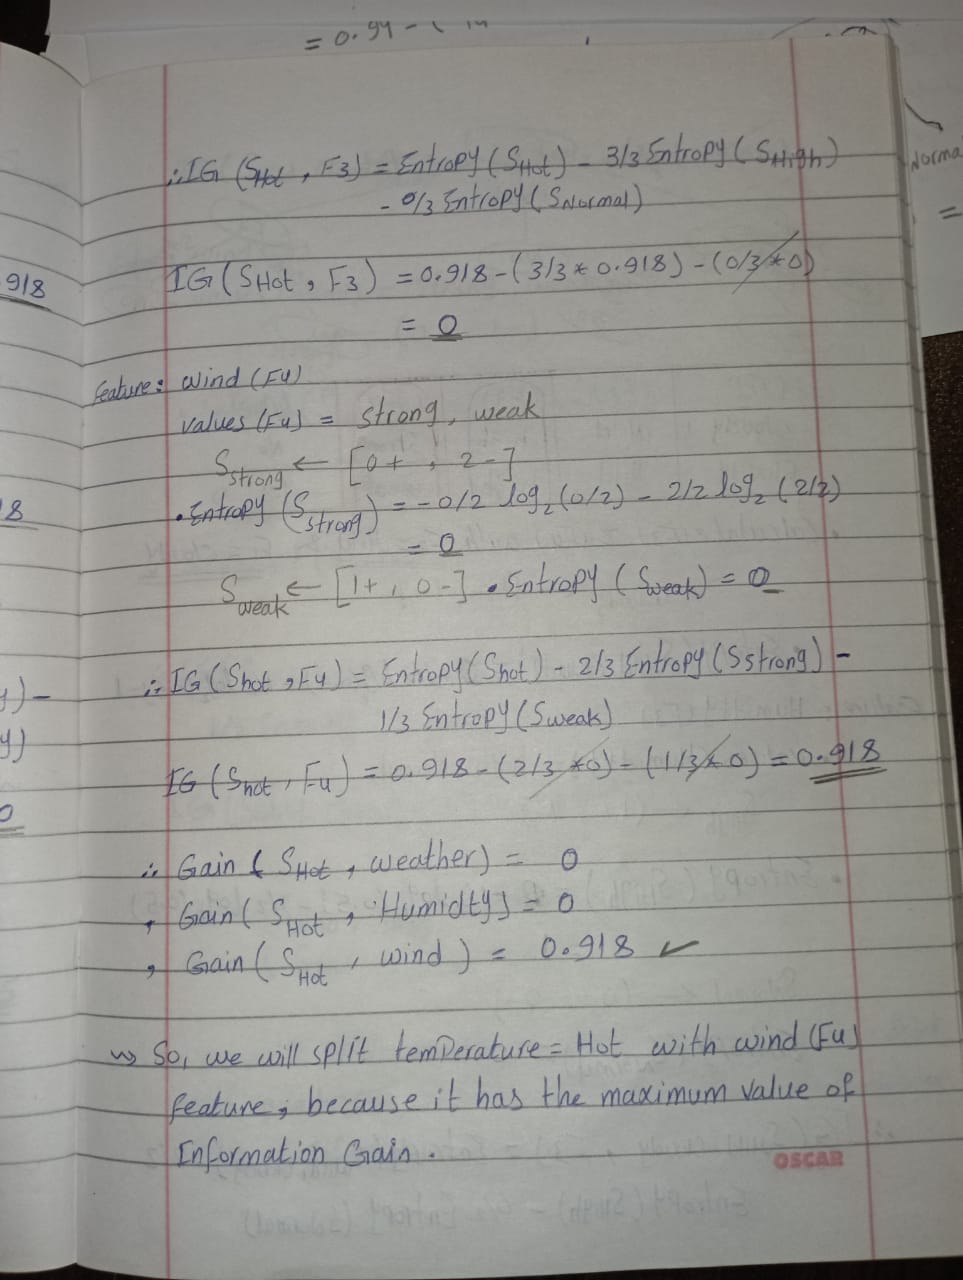 = 0.94 - (
∴ IG (SHot , F3) = Entropy (SHot) - 3/3 Entropy (SHigh)
- 0/3 Entropy (SNormal)
Norma
=
918
IG (SHot , F3) = 0.918 - (3/3 * 0.918) - (0/3 * 0)
= 0
Feature: Wind (F4)
values (F4) = strong, weak
Sstrong ← [0+ , 2-]
8
• Entropy (Sstrong) = -0/2 log2 (0/2) - 2/2 log2 (2/2)
= 0
Sweak ← [1+ , 0-] • Entropy (Sweak) = 0
y) -
∴ IG (Shot , F4) = Entropy (Shot) - 2/3 Entropy (Sstrong) -
y)
1/3 Entropy (Sweak)
IG (Shot , F4) = 0.918 - (2/3 * 0) - (1/3 * 0) = 0.918
0
∴ Gain ( SHot , weather) = 0
, Gain ( SHot , Humidty) = 0
, Gain ( SHot , wind ) = 0.918 ✓
So, we will split temperature = Hot with wind (F4)
feature, because it has the maximum value of
Information Gain .
OSCAR